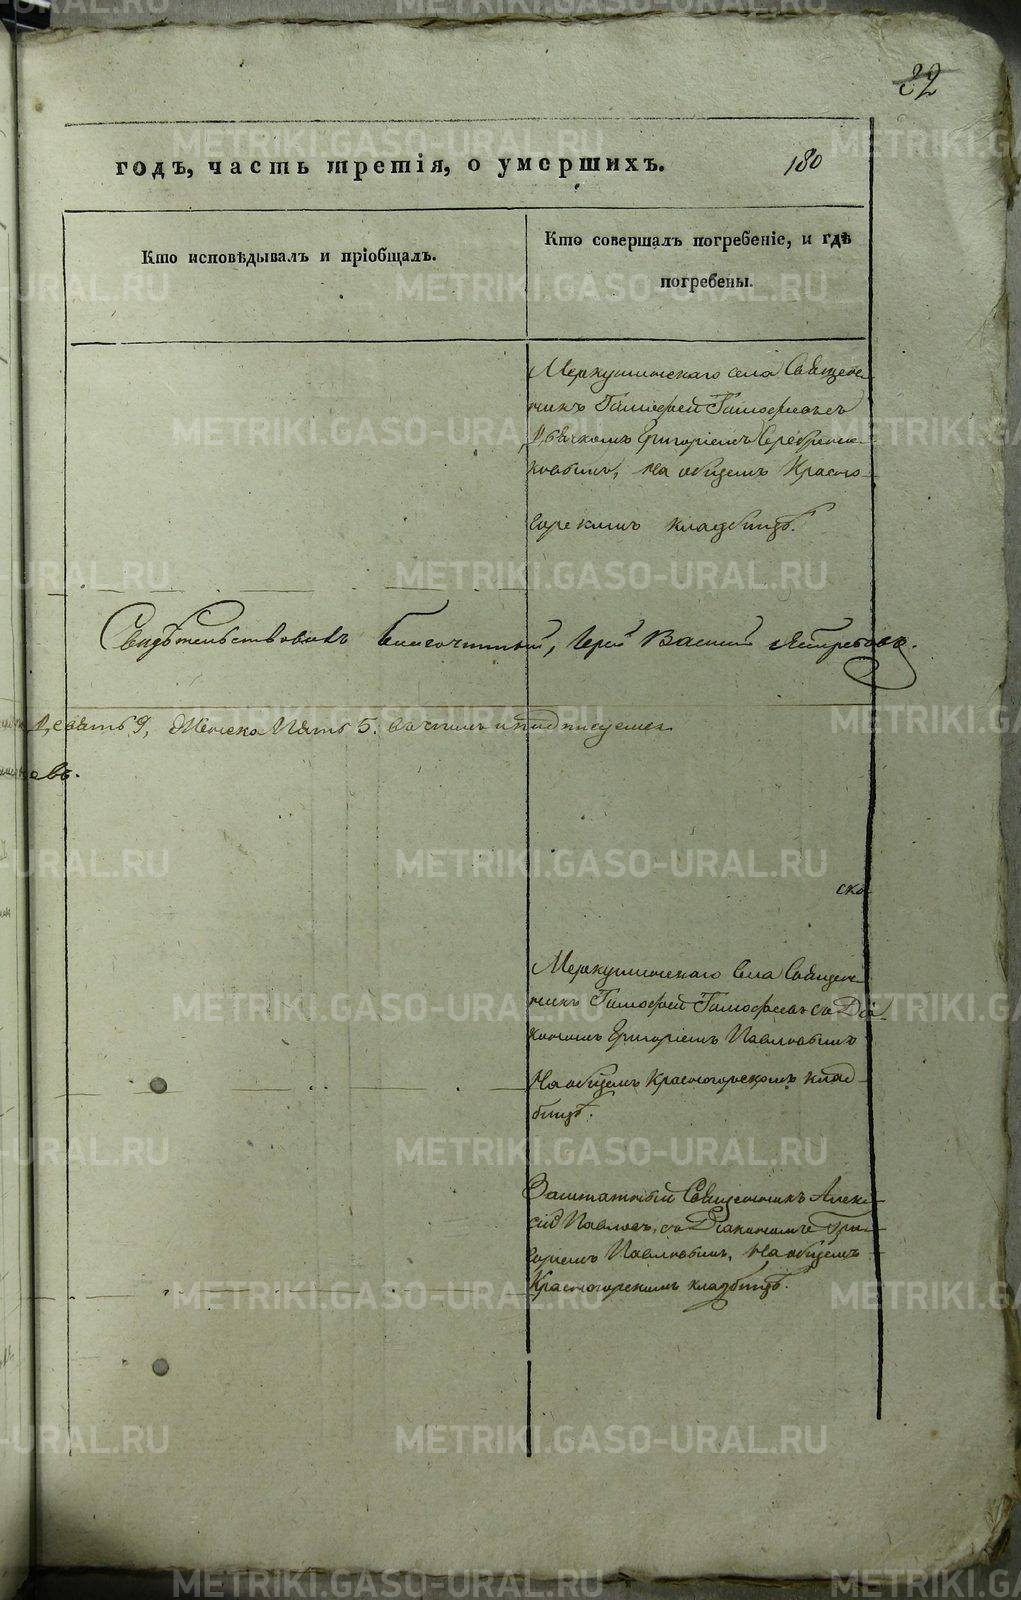 32
годъ, часть третія, о умершихъ.
180
Кто исповѣдывалъ и пріобщалъ.
Кто совершалъ погребеніе, и гдѣ
погребены.
Меркушинскаго села Священ-
никъ Тимофей Тимофеевъ съ
Дьячкомъ Григоріемъ Серебрени-
ковымъ, на общемъ Красно-
горскимъ кладбищѣ.
Свидѣтельствовалъ благочинный, Іерей Василий
Девять 9, Женска Пять 5. въ чемъ и подписуемся
евъ.
ска
Меркушинскаго села Священ-
никъ Тимофей Тимофеевъ съ Діа-
кономъ Григоріемъ Павловымъ
На общемъ Красногорскомъ клад-
бищѣ.
Заштатный Священникъ Алек-
сій Павловъ, съ Діакономъ Гри-
горіемъ Павловымъ, на общемъ
Красногорскимъ кладбищѣ.
METRIKI.GASO-URAL.RU